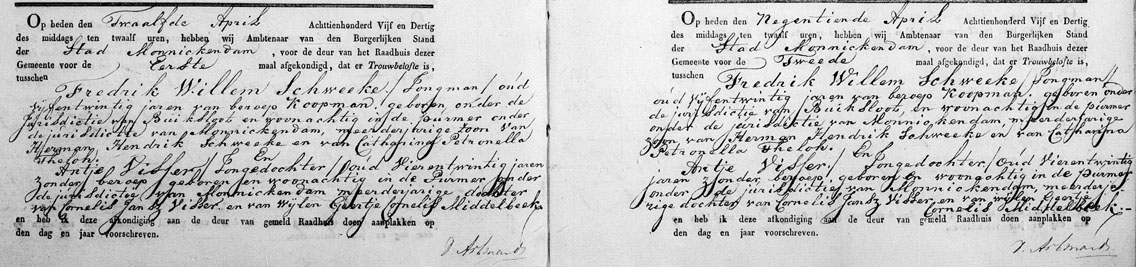 Op heden den Twaalfde April Achttienhonderd Vijf en Dertig
des middags ten twaalf uren, hebben wij Ambtenaar van den Burgerlijken Stand
der Stad Monnickendam, voor de deur van het Raadhuis dezer
Gemeente voor de Eerste maal afgekondigd, dat er Trouwbelofte is,
tusschen
Fredrik Willem Schweeke / Jongman / oúd
Vijfentwintig jaren van beroep Koopman, geboren onder de
Jurisdictie van Buiksloot en woonachtig in de purmer onder
de jurisdictie van Monnickendam, meerderjarige zoon van
Herman Hendrik Schweeke en van Catharina Petronella
Thelon.
En
Antje Visser / Jongedochter / oúd Vierentwintig jaren
zonder beroep, geboren en woonachtig in de Purmer onder
de jurisdictie van Monnickendam meerderjarige dochter
van Cornelis Jansz Visser en van wijlen Geertje Cornelis Middelbeek
en heb ik deze afkondiging aan de deur van gemeld Raadhuis doen aanplakken op
den dag en jaar voorschreven.
Op heden den Negentiende April Achttienhonderd Vijf en Dertig,
des middags ten twaalf uren, hebben wij Ambtenaar van den Burgerlijken Stand
der Stad Monnickendam, voor de deur van het Raadhuis dezer
Gemeente voor de Tweede maal afgekondigd, dat er Trouwbelofte is,
tusschen
Fredrik Willem Schweeke / Jongman /
oud Vijfentwintig jaren van beroep Koopman, geboren onder
de jurisdictie van Buiksloot en woonachtig in de purmer
onder de jurisdictie van Monnickendam, meerderjarige
zoon van Herman Hendrik Schweeke en van Catharina
Petronella Thelon.
En
Antje Visser / Jongedochter / Oud Vierentwintig
jaren zonder beroep, geboren en woonachtig in de purmer
onder de jurisdictie van Monnickendam, meerderja-
rige dochter van Cornelis Jansz Visser en van wijlen Geertje
Cornelis Middelbeek.
en heb ik deze afkondiging aan de deur van gemeld Raadhuis doen aanplakken op
den dag en jaar voorschreven.